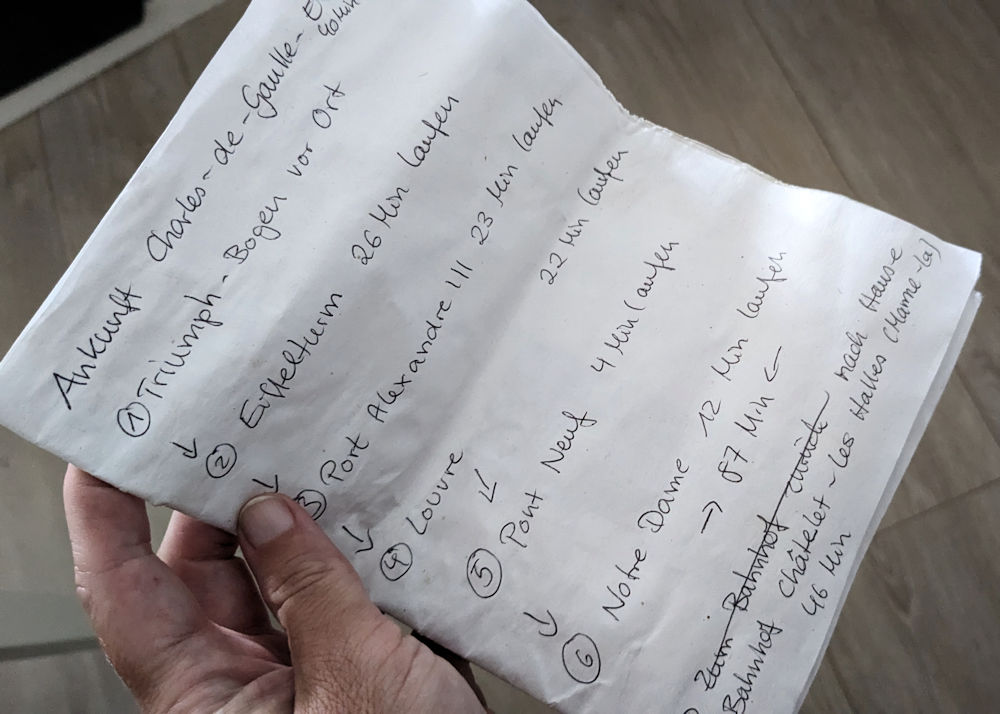 Ankunft Charles-de-Gaulle-E
40 Min
① Triumph-Bogen vor Ort
↓
② Eiffelturm 26 Min laufen
↓
③ Port Alexandre III 23 Min laufen
↓
④ Louvre 22 Min laufen
↓
⑤ Pont Neuf 4 Min laufen
↓
⑥ Notre Dame 12 Min laufen
→ 87 Min ←
Zum Bahnhof zurück nach Hause
Bahnhof Châtelet-Les Halles (Marne-la)
46 Min